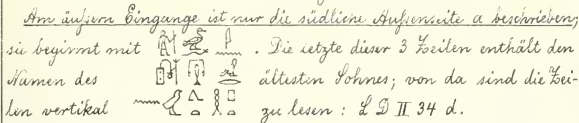 Am äußern Eingange ist nur die südliche Außenseite a beschrieben;
sie beginnt mit . Die letzte dieser 3 Zeilen enthält den
Namen des ältesten Sohnes; von da sind die Zei-
len vertikal zu lesen: L D II 34 d.